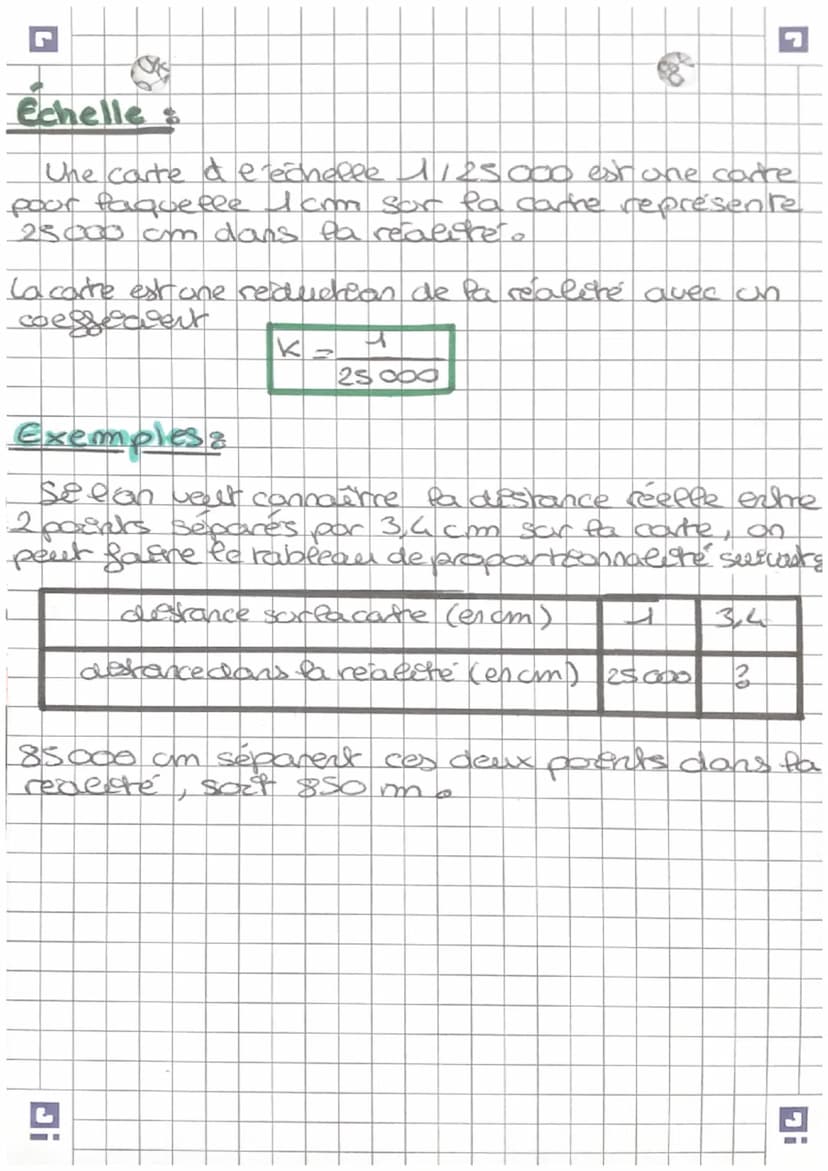 Échelle :
Une carte à l'échelle 1/25 000 est une carte
pour laquelle 1 cm sur la carte représente
25 000 cm dans la réalité.
La carte est une réduction de la réalité avec un
coefficient
K = 1
25 000
Exemples :
Si l'on veut connaître la distance réelle entre
2 points séparés par 3,4 cm sur la carte, on
peut faire le tableau de proportionnalité suivant :
distance sur la carte (en cm) 1 3,4
distance dans la réalité (en cm) 25 000 ?
85 000 cm séparent ces deux points dans la
réalité, soit 850 m.